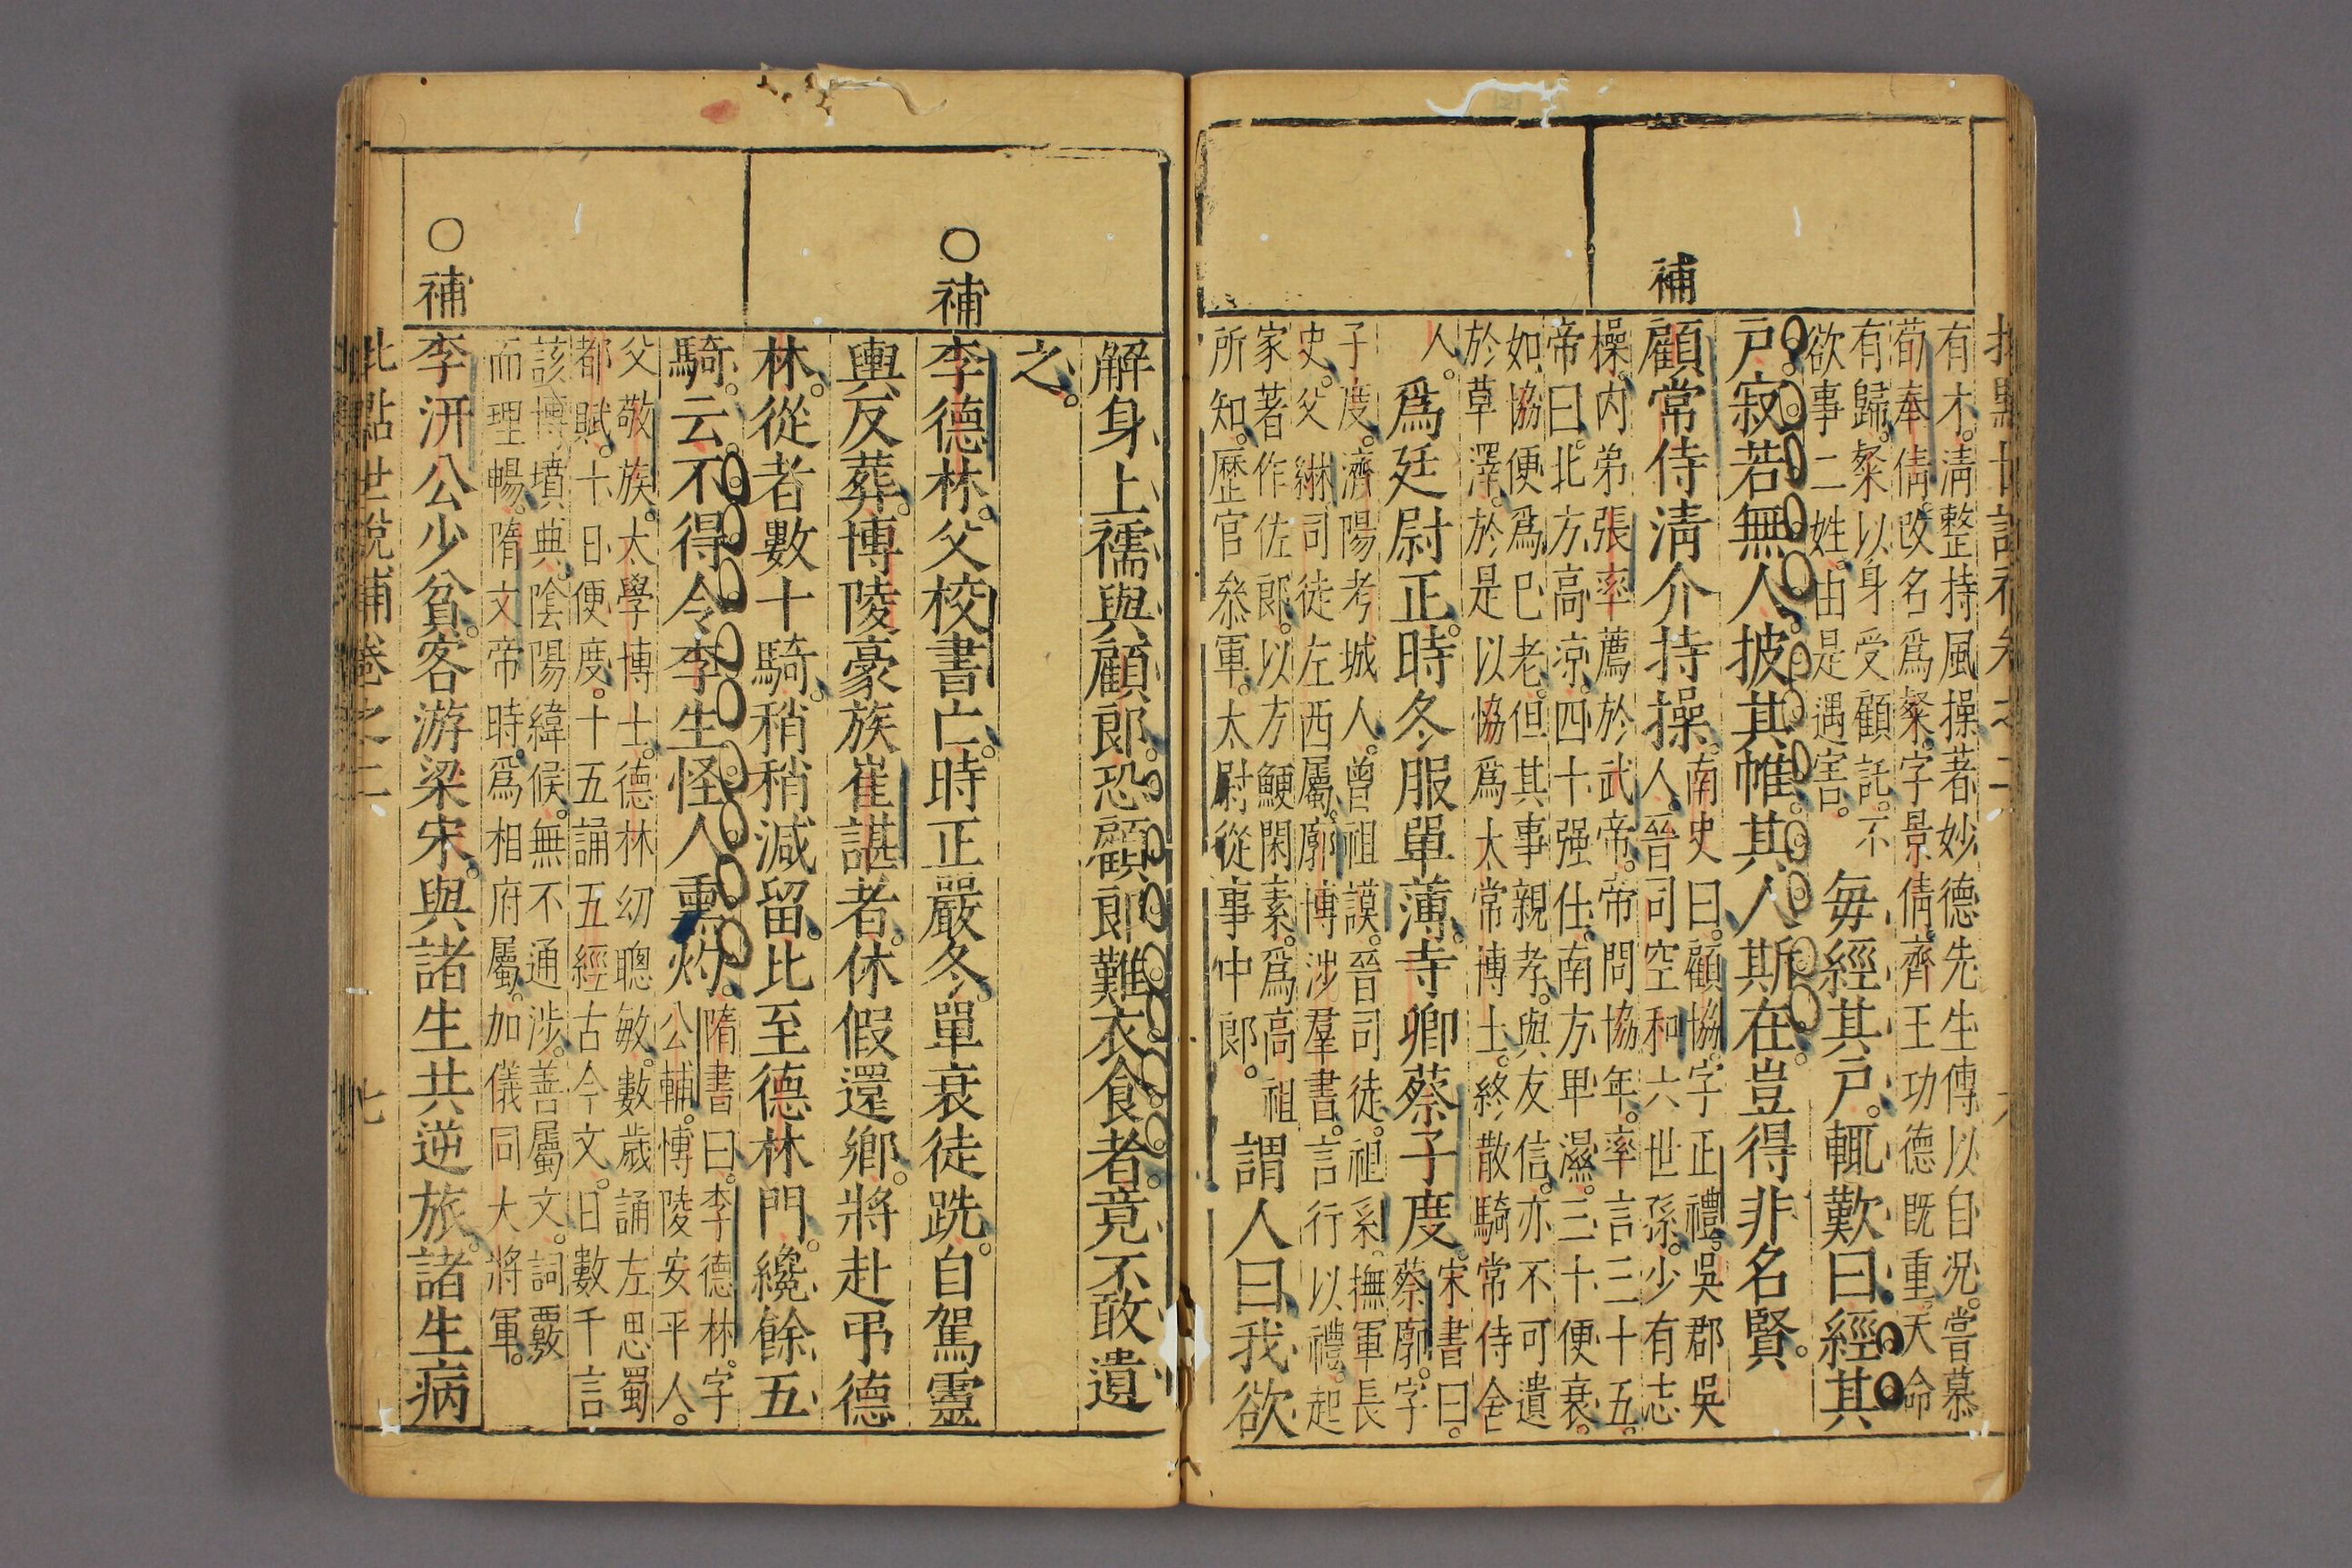 有才清整持風操著妙德先生傳以自況嘗慕
荀奉倩改名爲粲字景倩齊王功德既重天命
有歸粲以身受顧託不
欲事二姓由是遇害
每經其戸輒歎曰經其
戸寂若無人披其帷其人斯在豈得非名賢
補
顧常侍淸介持操
南史曰顧協字正禮吳郡吳
人晉司空和六世孫少有志
操內弟張率薦於武帝帝問協年率言三十五
帝曰北方高凉四十强仕南方卑濕三十便衰
如協便爲已老但其事親孝與友信亦不可遺
於草澤於是以協爲太常博士終散騎常侍舍
人
爲廷尉正時冬服單薄寺卿蔡子度
宋書曰
蔡廓字
子度濟陽考城人曾祖謨晉司徒祖系撫軍長
史父綝司徒左西屬廓博涉羣書言行以禮起
家著作佐郎以方鯁閑素爲高祖
所知歷官叅軍太尉從事中郎
謂人曰我欲
解身上襦與顧郎恐顧郎難衣食者竟不敢遺
之
〇補
李德林父校書亡時正嚴冬單衰徒跣自駕靈
輿反葬博陵豪族崔諶者休假還鄉將赴弔德
林從者數十騎稍稍減留比至德林門纔餘五
騎云不得令李生怪人熏灼
隋書曰李德林字
公輔博陵安平人
父敬族太學博士德林幼聰敏數歲誦左思蜀
都賦十日便度十五誦五經古今文日數千言
該博墳典陰陽緯候無不通涉善屬文詞覈
而理暢隋文帝時爲相府屬加儀同大將軍
〇補
李汧公少貧客游梁宋與諸生共逆旅諸生病
批點世說補卷之二
七